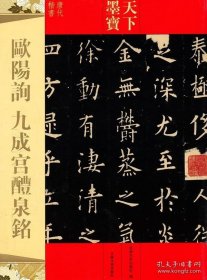 天下
墨寶
唐代
楷書
歐陽詢 九成宫醴泉銘
足深尤至於炎
金無鬱蒸之氣
徐動有淒清之
四方逮乎立年
孔夫子旧书网